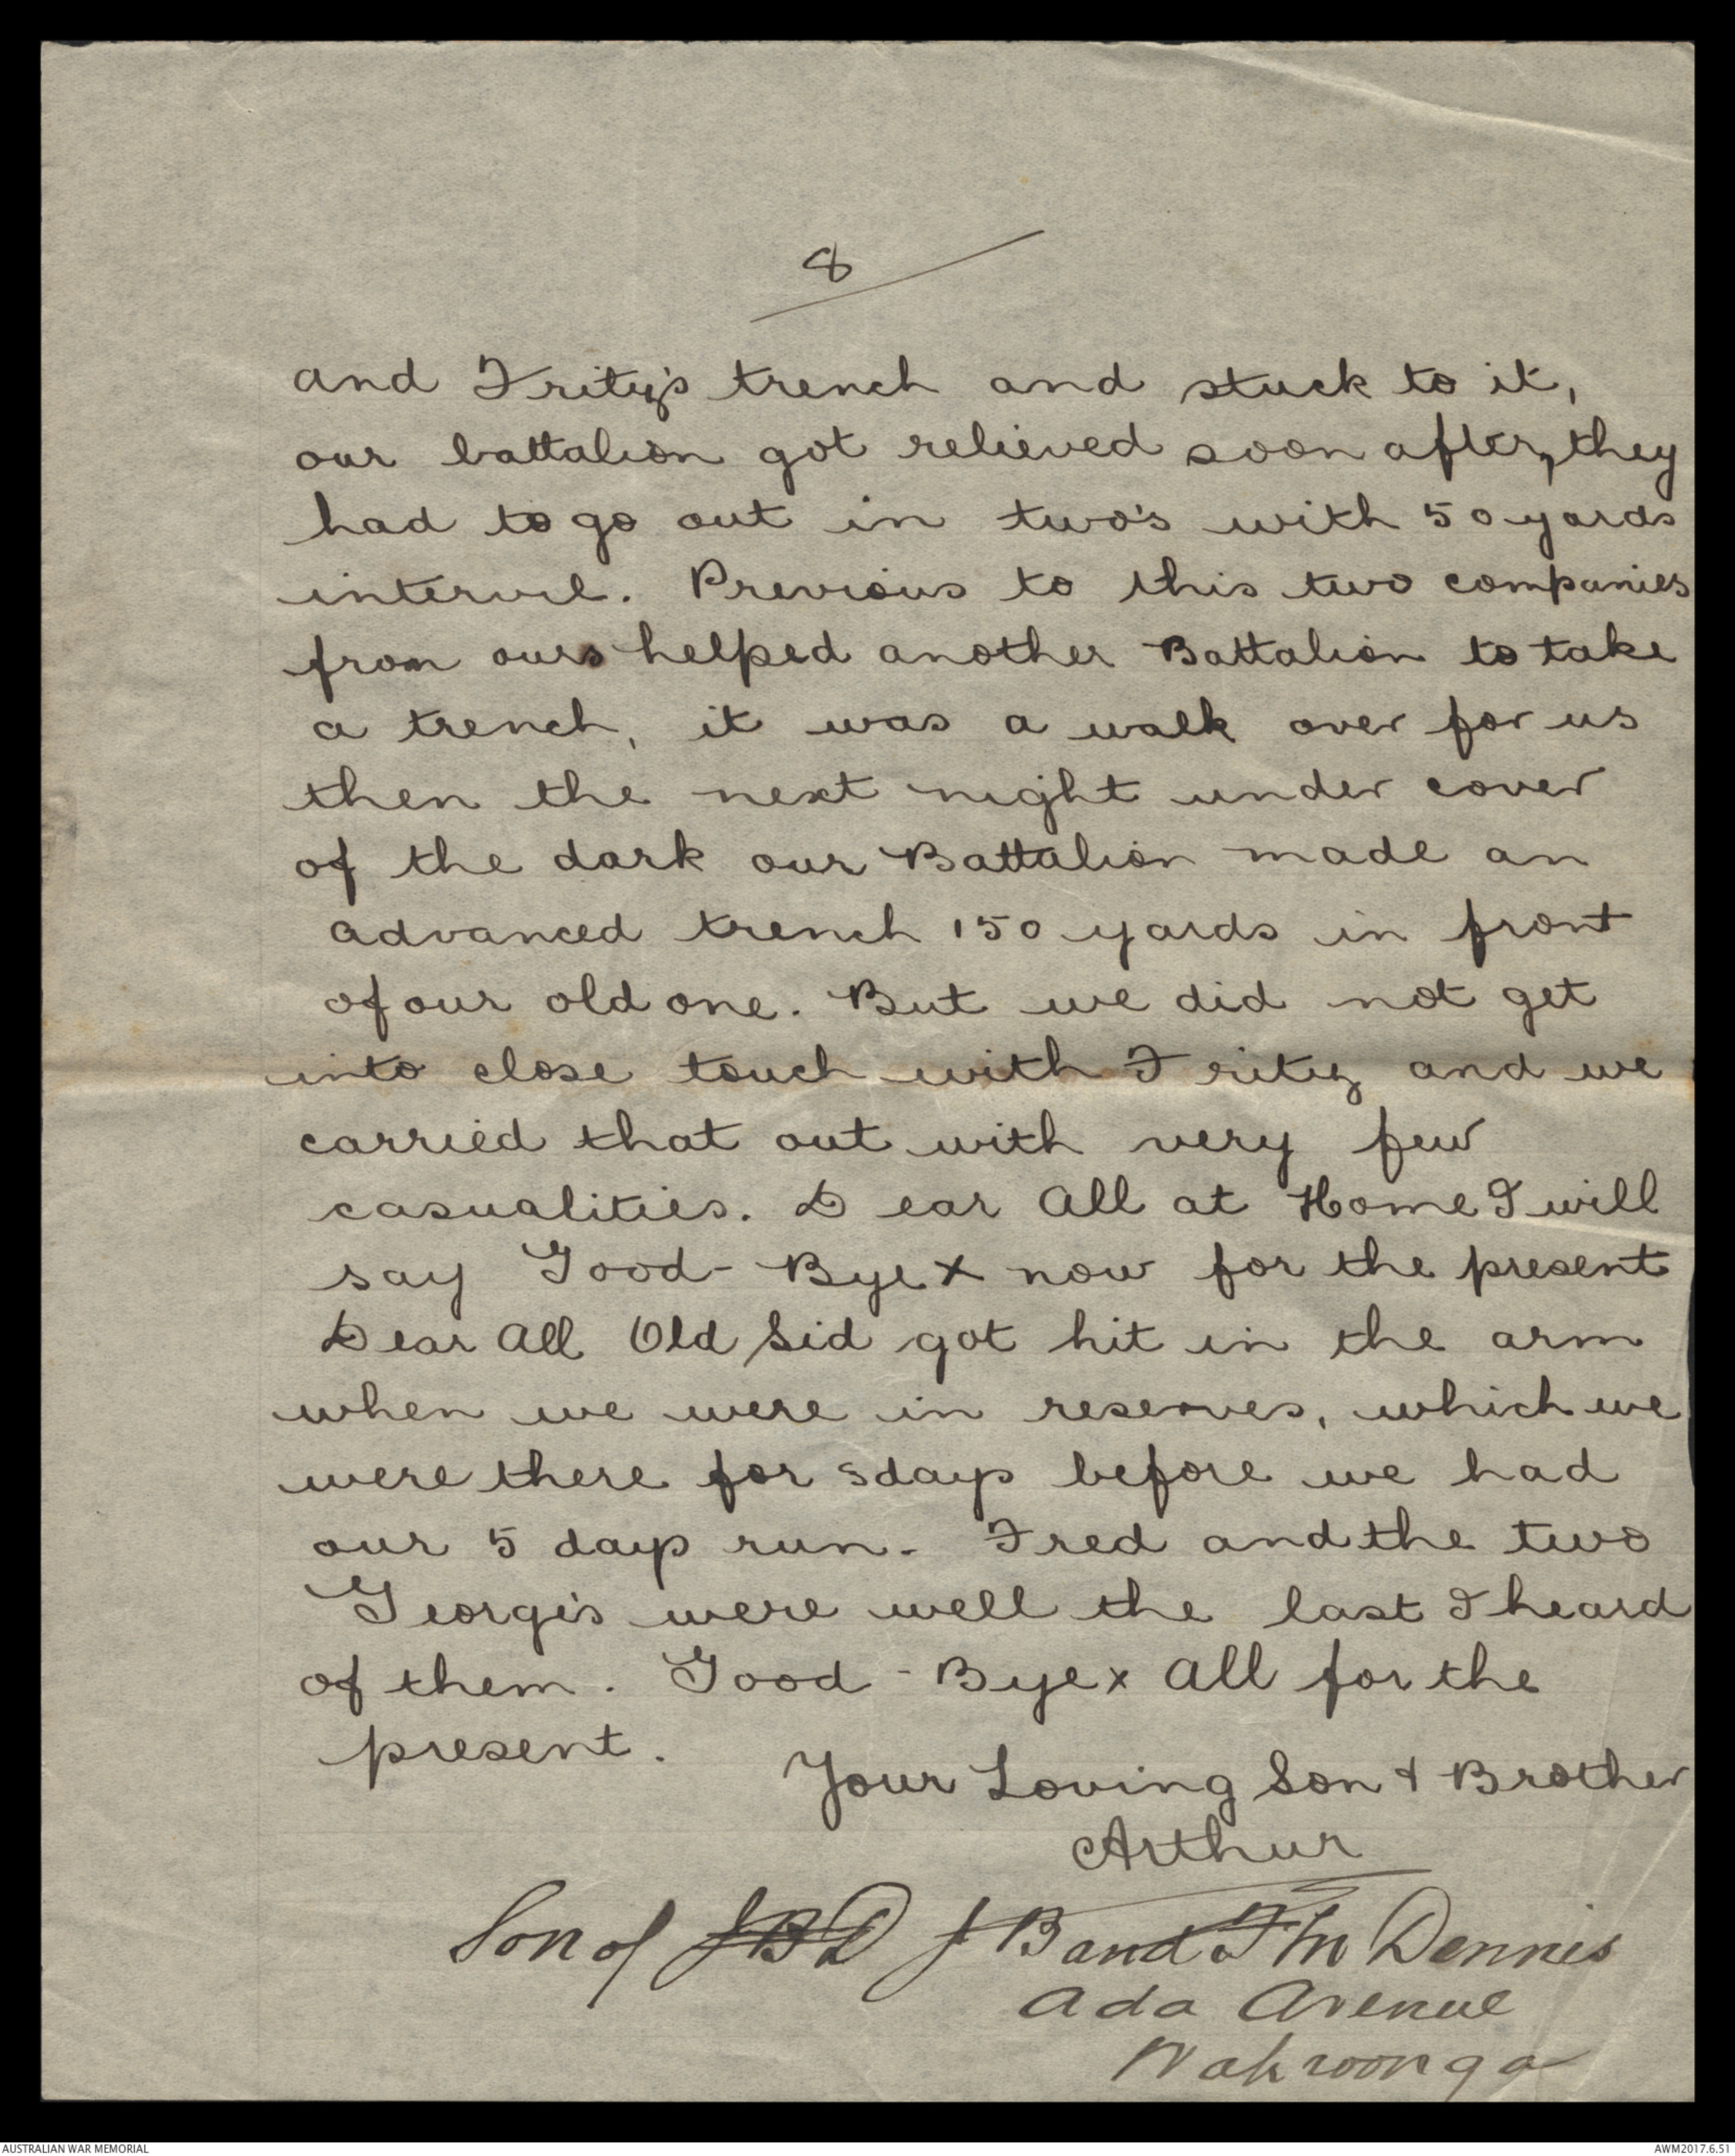 8
and Fritz's trench and stuck to it,
our battalion got relieved soon after, they
had to go out in two's with 50 yards
intervil. Previous to this two companies
from ours helped another Battalion to take
a trench, it was a walk over for us
then the next night under cover
of the dark our Battalion made an
advanced trench 150 yards in front
of our old one. But we did not get
into close touch with Fritz and we
carried that out with very few
casualities. Dear All at Home I will
say Good-Bye x now for the present
Dear All Old Sid got hit in the arm
when we were in reserves, which we
were there for 5 days before we had
our 5 days run. Fred and the two
George's were well the last I heard
of them. Good-Bye x All for the
present.
Your Loving Son & Brother
Arthur
Son of J B D J B and F M Dennis
Ada Avenue
Wahroonga
AUSTRALIAN WAR MEMORIAL
AWM2017.6.51